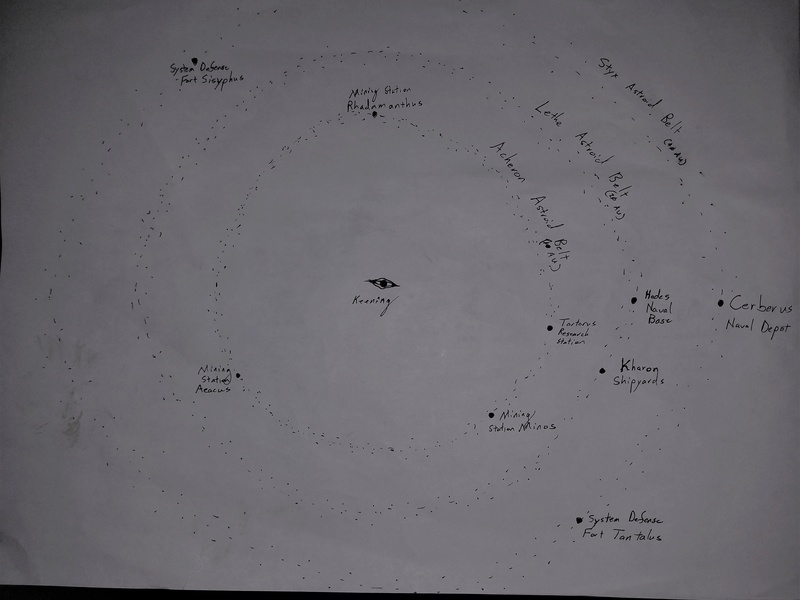 System Defense
Fort Sisyphus
Mining Station
Rhadamanthus
Styx Astroid Belt
Lethe Astroid Belt
Acheron Astroid Belt
Keening
Hades
Naval
Base
Cerberus
Naval Depot
Tartarus
Research
Station
Kharon
Shipyards
Mining
Station
Aeacus
Mining
Station Minos
System Defense
Fort Tantalus